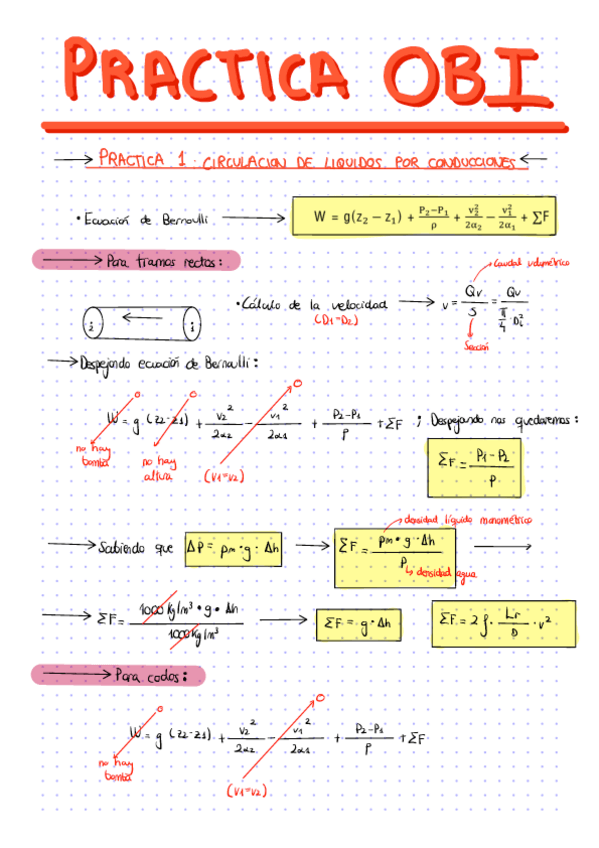 PRACTICA OBI
→ PRACTICA 1. CIRCULACION DE LIQUIDOS POR CONDUCCIONES ←
• Ecuación de Bernoulli → W = g(z₂ − z₁) + P₂−P₁/ρ + v₂²/2α₂ − v₁²/2α₁ + ΣF
→ Para tramos rectos:
Caudal volumétrico
2 ← 1
• Cálculo de la velocidad → v = Qv/S = Qv/(π/4 · Di²)
(D1=D2)
Sección
→ Despejando ecuación de Bernoulli:
0 0 0
W = g · (z2-z1) + v2²/2α2 − v1²/2α1 + P2-P1/ρ + ΣF ; Despejando nos quedaremos:
no hay bomba
no hay altura
(v1=v2)
ΣF = P1-P2/ρ
→ Sabiendo que ΔP = ρm · g · Δh → ΣF = ρm · g · Δh/ρ →
densidad líquido manométrico
densidad agua
→ ΣF = 1000 kg/m³ · g · Δh/1000 kg/m³ → ΣF = g · Δh
ΣF = 2 f · Lr/D · v²
→ Para codos:
0 0
W = g (z2-z1) + v2²/2α2 − v1²/2α1 + P2-P1/ρ + ΣF
no hay bomba
(v1=v2)